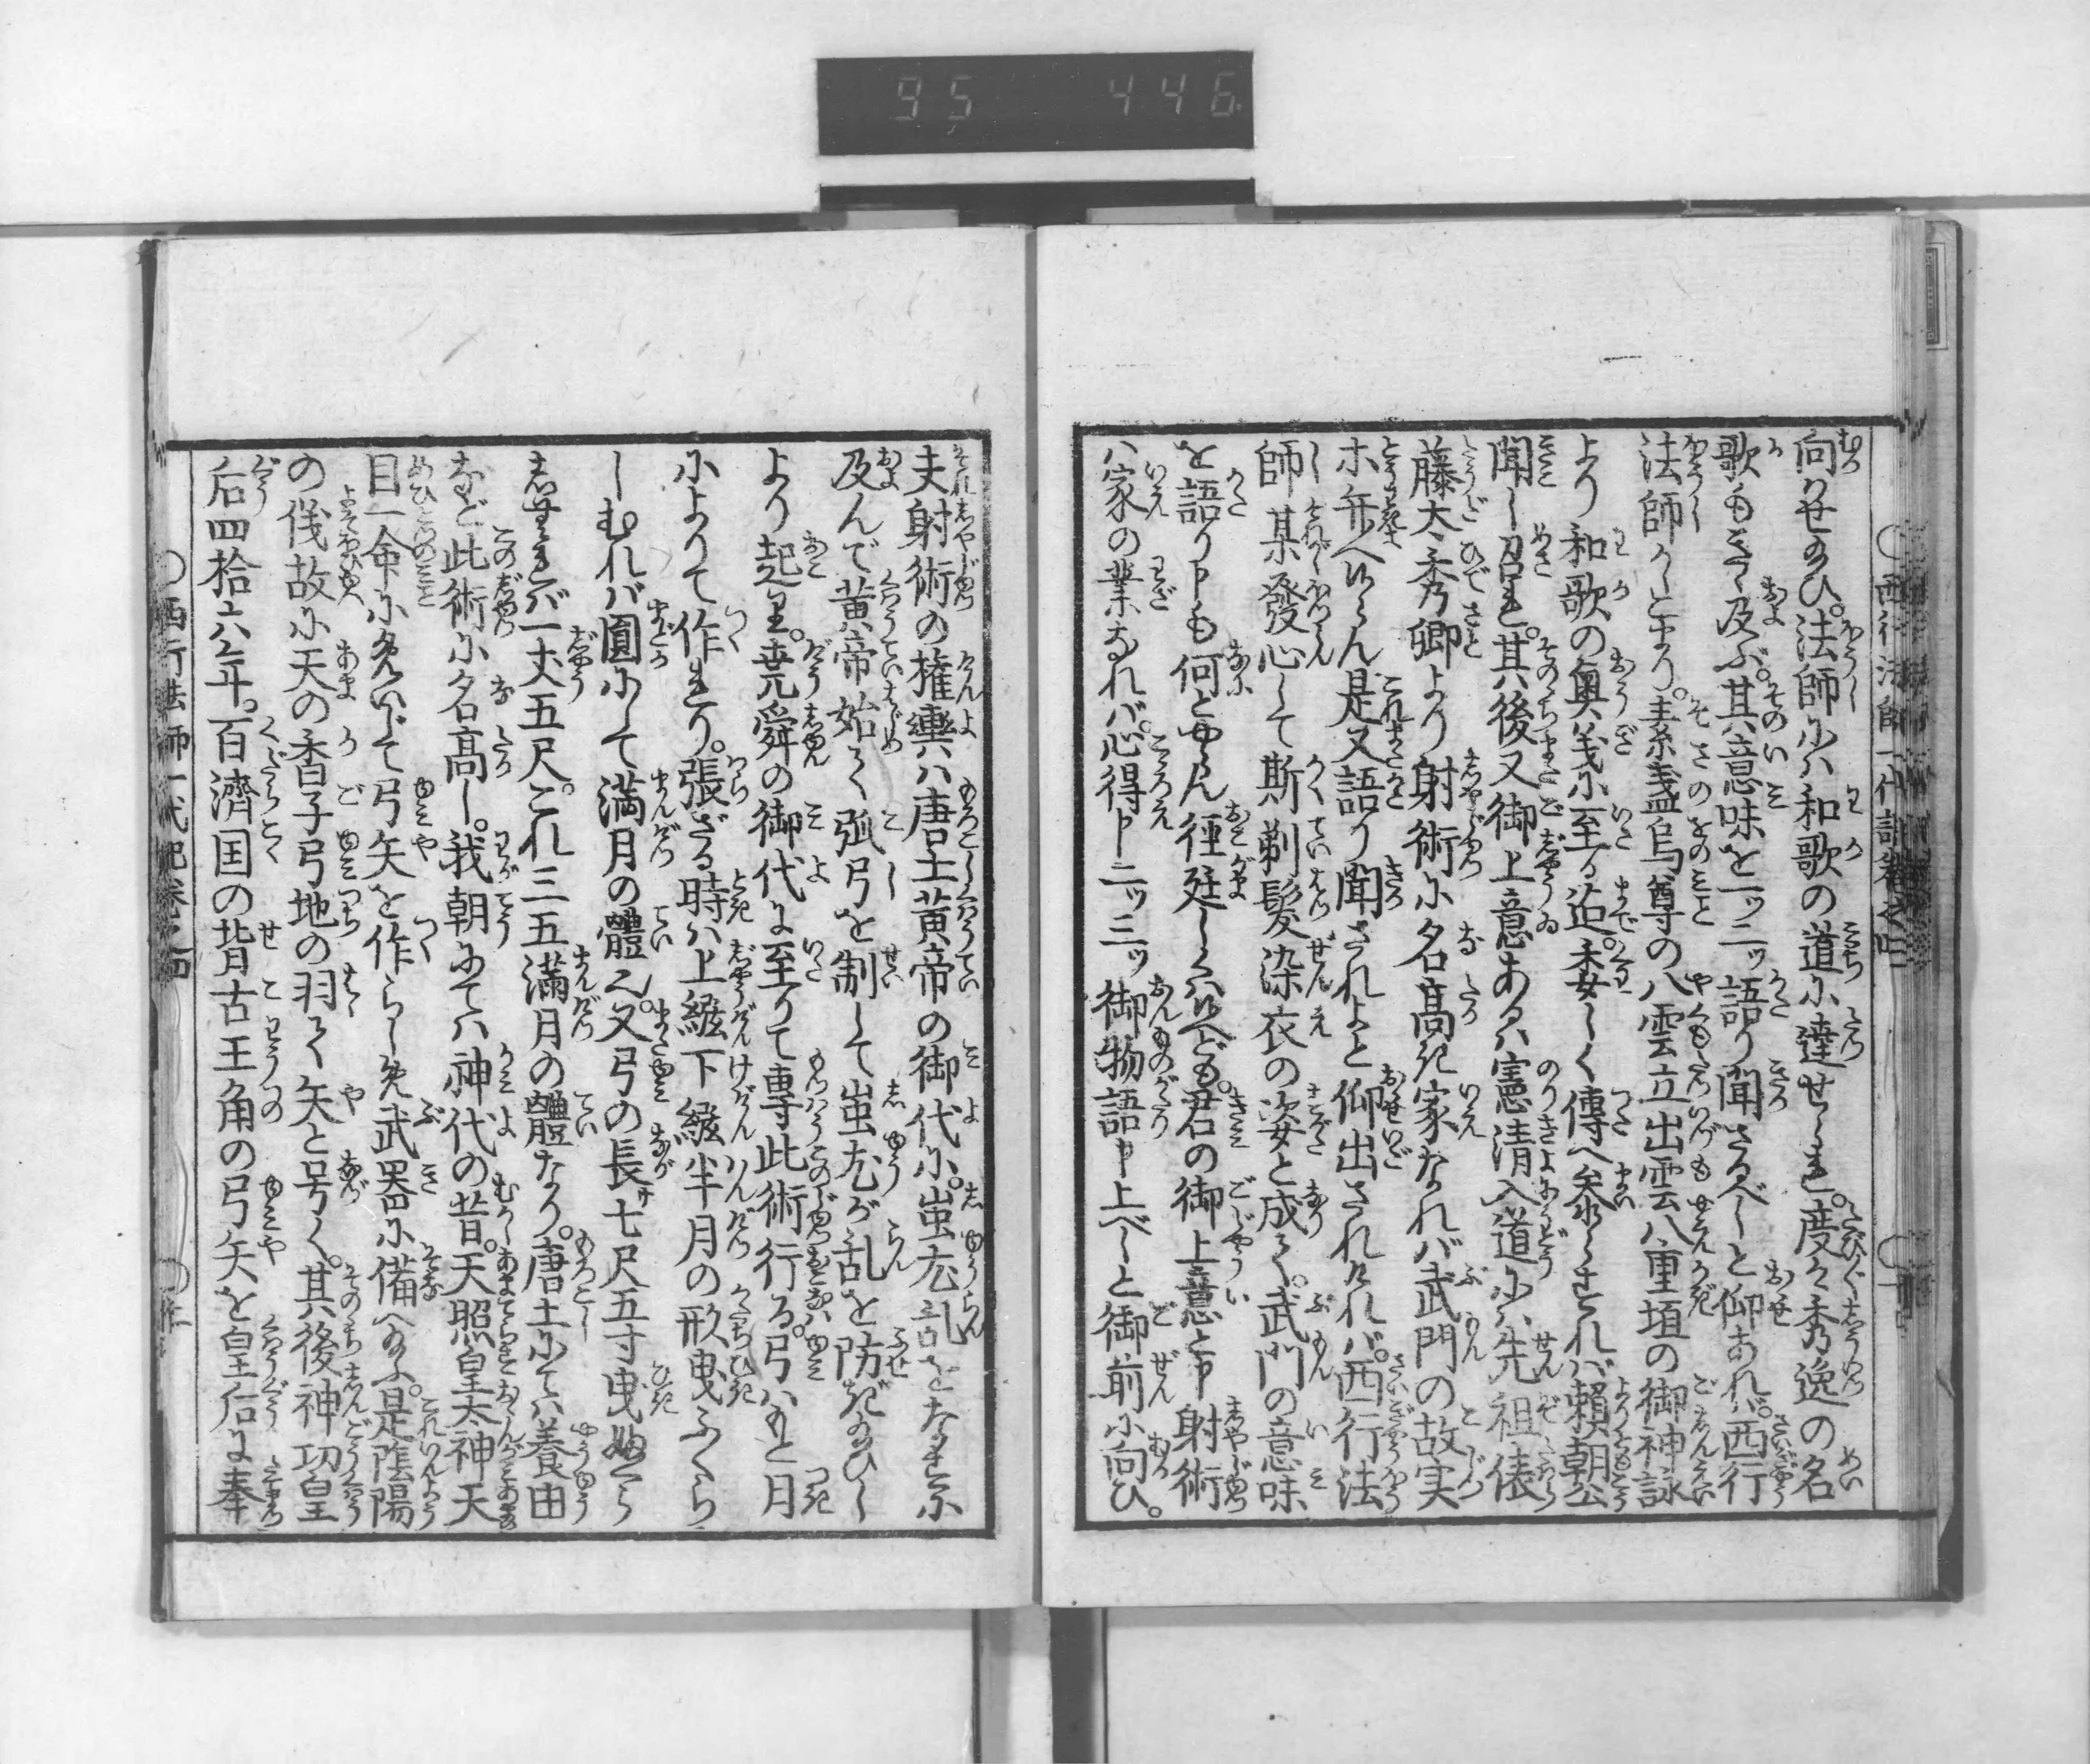 95 446
西行法師一代記巻之四
向はせ給ひ。法師には和歌の道に達せられ。度々秀逸の名
歌もきゝ及ぶ。其意味を一ッ二ッ語り聞さるべしと仰あれば。西行
法師かしこまり。素盞烏尊の八雲立出雲八重垣の御神詠
より和歌の奥義に至る迄。委しく傳へ参らすれば頼朝公
聞し召れ。其後又御上意あるは憲清入道には先祖俵
藤太秀郷より射術に名高き家なれば武門の故実
ホ弁へ候はん是又語り聞されよと仰出されければ。西行法
師某發心して斯剃髪染衣の姿と成て。武門の意味
を語り申も何とやらん徑廷しくは候へども。君の御上意と申射術
ハ家の業なれば。心得申二ッ三ッ御物語申上べしと御前に向ひ。
夫射術の権輿ハ唐土黄帝の御代に。蚩尤乱をなすに
及んで黄帝始て弧弓を制して蚩尤が乱を防ぎ給ひし
より起れり。尭舜の御代に至りて専此術行る。弓ハもと月
によりて作れり。張ざる時ハ上絃下絃半月の形曳ふくら
しむれバ圓にして満月の體也。又弓の長サ七尺五寸曳ぬくら
しむれバ一丈五尺。これ三五満月の體なり。唐土にてハ養由
など此術に名高し。我朝にてハ神代の昔。天照皇太神天
目一命に免いじて弓矢を作らしめ武器に備へ給ふ。是陰陽
の儀故に天の香子弓地の羽々矢と号く。其後神功皇
后四拾六年。百濟国の背古王角の弓矢を皇后に奉
西行法師一代記巻之四